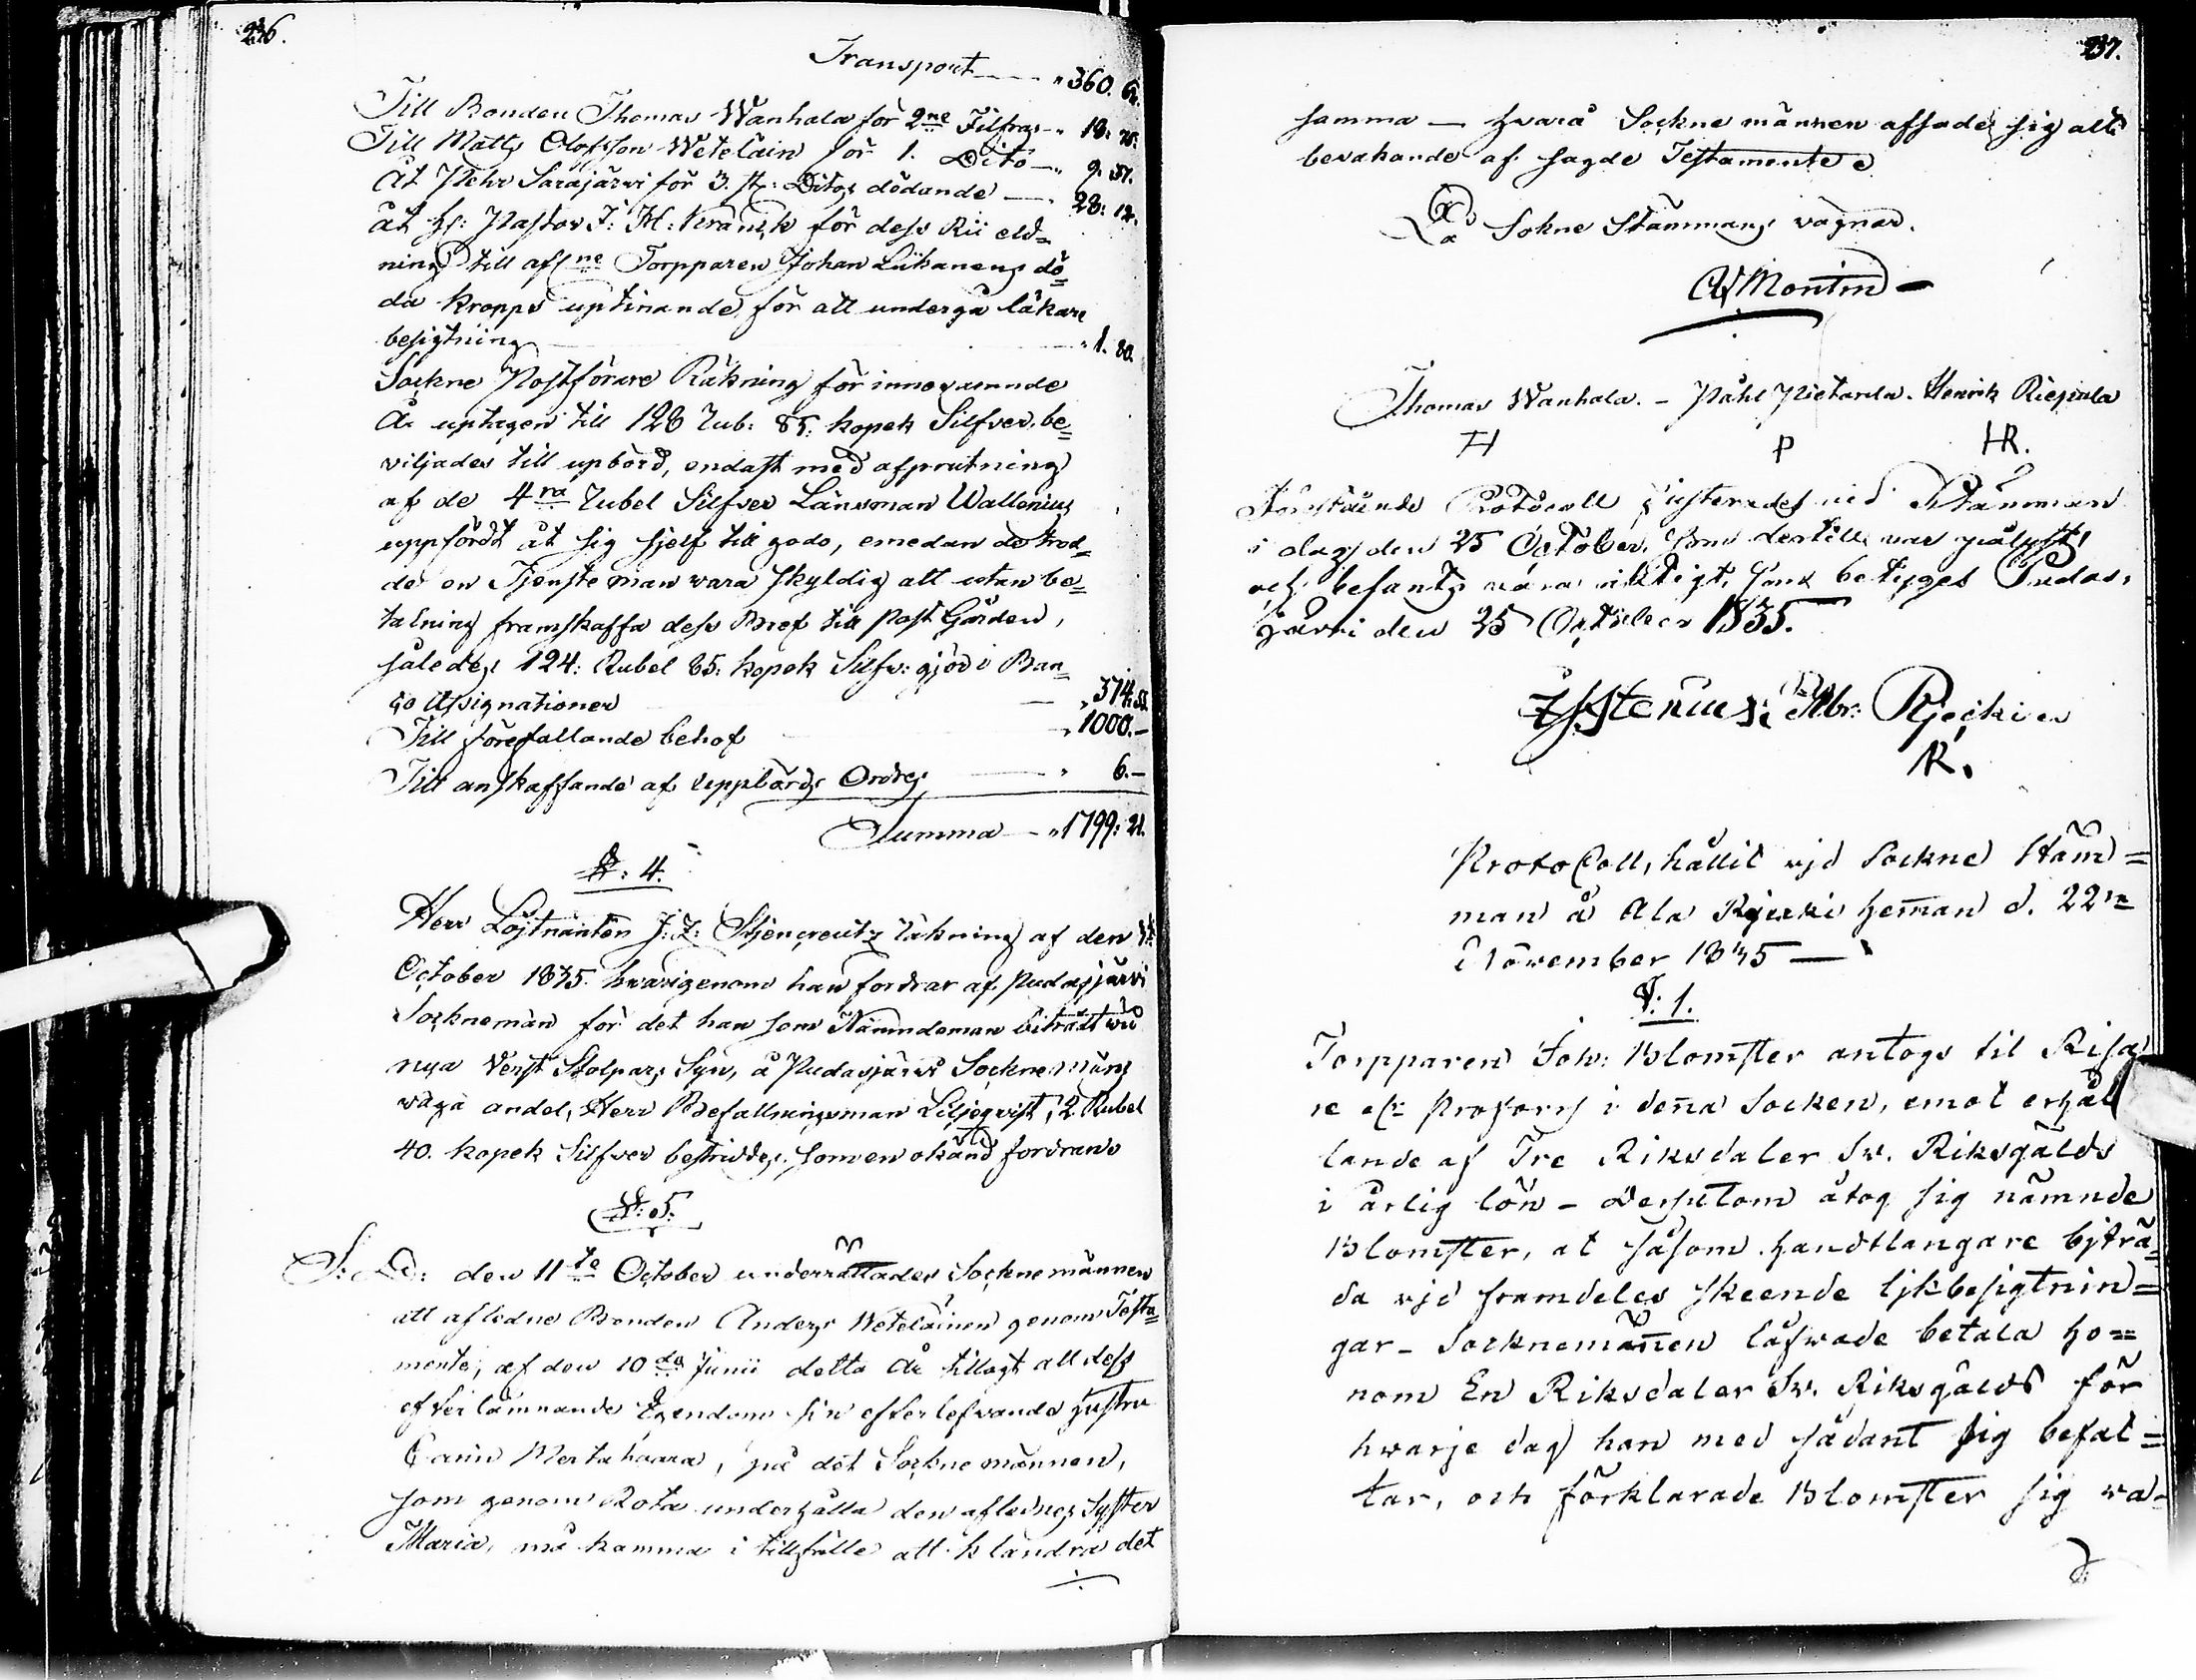 236.
Transport " 360. 62.
Till Bonden Thomas Wanhala för 2ne Filfras " 18: 75.
Till Matts Olofsson Wetelain för 1. Dito " 9. 37.
Åt Pehr Sarajärvi för 3. st: Ditos dödande 28: 12.
åt Hr: Pastor J: H: Kranck för dess Rii eld=
ning till aflne Torpparen Johan Liikanens dö=
da kropps uptinande för att undergå läkare
besigtning " 1. 80.
Sockne Postförare Räkning för innevarande
År uptagen till 128 Rub: 85. kopek Silfver, be=
viljades till upbörd, endast med afprutning
af de 4ra Rubel Silfver Länsman Wallenius
uppfördt åt sig sjelf till godo, emedan de trod=
de en Tjensteman vara skyldig att utan be=
talning framskaffa dess Bref till Post Gården,
således 124: Rubel 85. kopek Silfv: gjör i Ban=
co Assignationer " 374: 55.
Till förefallande behof " 1000. –
Till anskaffande af Uppbörds Ordres " 6. –
Summa " 1799: 21.
§: 4.
Herr Löjtnanten J: Z: Stjencreutz räkning af den
October 1835. hvarigenom han fordrar af Pudasjärvi
Socknemän för det han som Nämndeman biträdt vid
nya Verst Stolpars Syn, å Pudasjärvi Sockne mäns
väga andel, Herr Befallningsman Liljeqvist, 2. Rubel
40. kopek Silfver bestriddes, som en okänd fordran
§: 5.
S: D: den 11te October underrättades Socknemännen
att aflidne Bonden Anders Wetelainen genom Testa=
mente, af den 10de Junii detta År tillagt all dess
efterlämnande Egendom sin efterlefvande hustru
Carin Mertahaara, på det Socknemännen,
som genom Rota underhålla den aflednes Syster
Maria, må komma i tillfälle att klandra det
237.
samma — hvarå Sockne männen afsade sig allt
bevakande af sagde Testamente
På Sokne Stämmans vägnar.
Af Montin
Thomas Wanhala. – Påhl Pietarila. Henrik Riepula
H P HR.
Förestående Protocoll justerades vid Stämman
i dag den 25 October, som dertill var pålyst,
och befants vara riktigt, som betyges Pudas.
järvi den 25 October 1835.
Abr: Rjecki
R.
ProtoColl, hållit vjd Sockne Stäm=
man å Ala Rjecki heman d. 22ne
November 1835 —
§: 1.
Torpparen Joh: Blomster antogs til Risa
re elr Profoss i denna Socken, emot erhål
lande af Tre Riksdaler Sv. Riksgälds
i årlig lön – Dessutom åtog sig nämnde
Blomster, at såsom handtlangare bjträ=
da vjd framdeles skeende ljkbesigtnin=
gar – Socknemännen låfwade betala ho=
nom En Riksdaler Sv. Riksgälds för
hwarje dag han med sådant sig befat=
tar, och förklarade Blomster sig va-